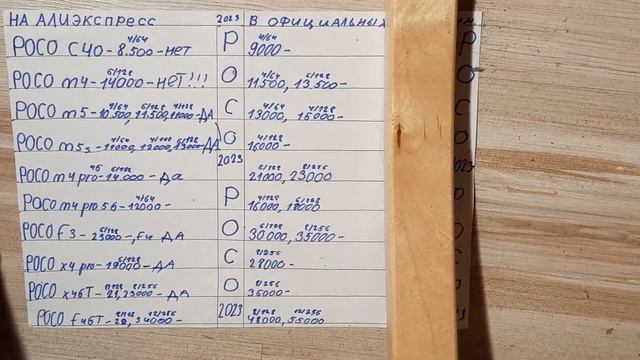 НА АЛИЭКСПРЕСС 2023 В ОФИЦИАЛЬНЫХ
4/64 4/64
POCO C40-8.500-НЕТ P 9000-
6/128 4/64 6/128
POCO m4-14000-НЕТ!!! O 11500, 13,500-
4/64 6/128 4/128 4/64 4/128
POCO m5-10.500, 11.500, 11000-ДА C 13000, 15000-
4/64 4/128 6/128 4/128
POCO m5s-11000, 12000, 13000-ДА O 16000-
2023
4G 6/128 6/128 8/256
POCO m4 pro-14.000-Да 21000, 23000
4/64 4/128 6/128
POCO m4 pro 5G-12000- P 16000, 18000
6/128 6/128 8/256
POCO f3-23000-, f4 ДА O 30000, 35000-
6/128 8/256
POCO x4 pro-19000-ДА C 28000-
8/128 8/256 8/256
POCO x4GT-21, 23000-ДА O 36000-
8/128 12/256 8/128 12/256
POCO f4GT-29, 34000- 2023 48000, 55000